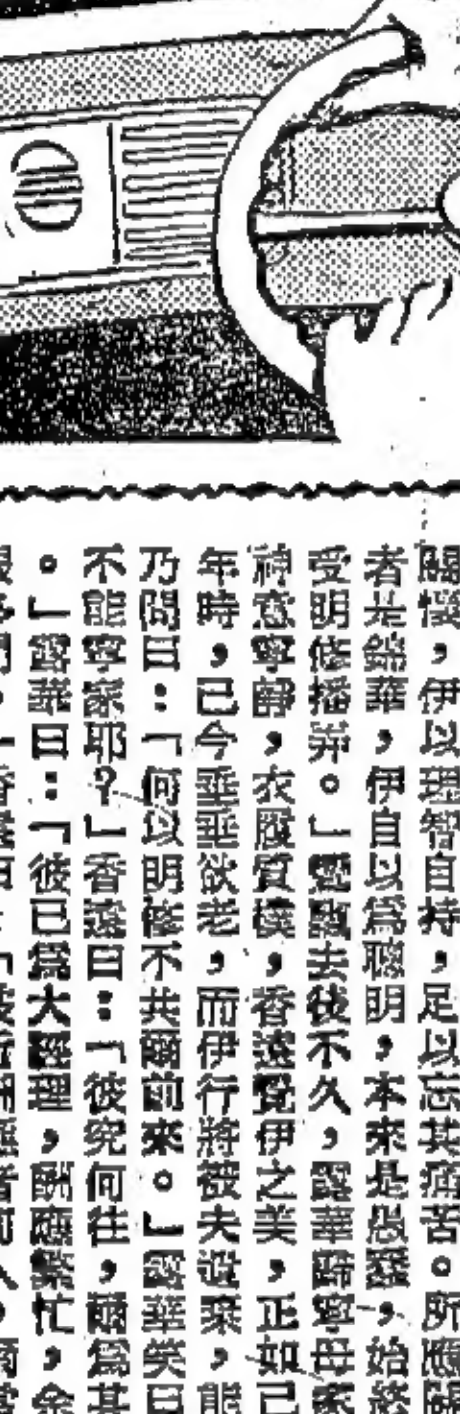 關懷，伊以理智自持，足以忘其痛苦。所應關
者是錦華，伊自以爲聰明，本來是愚蠢，始終
受明修播弄。」覺識去後不久，露華歸寧母家
神意寧靜，衣履質樸，香遠覺伊之美，正如已
年時，已今垂垂欲老，而伊行將被夫遺棄，能
乃問曰：「何以明修不共爾前來。」露華笑曰
不能寧家耶？」香遠曰：「彼究何往，爾爲其
。」露華曰：「彼已爲大經理，酬應繁忙，余